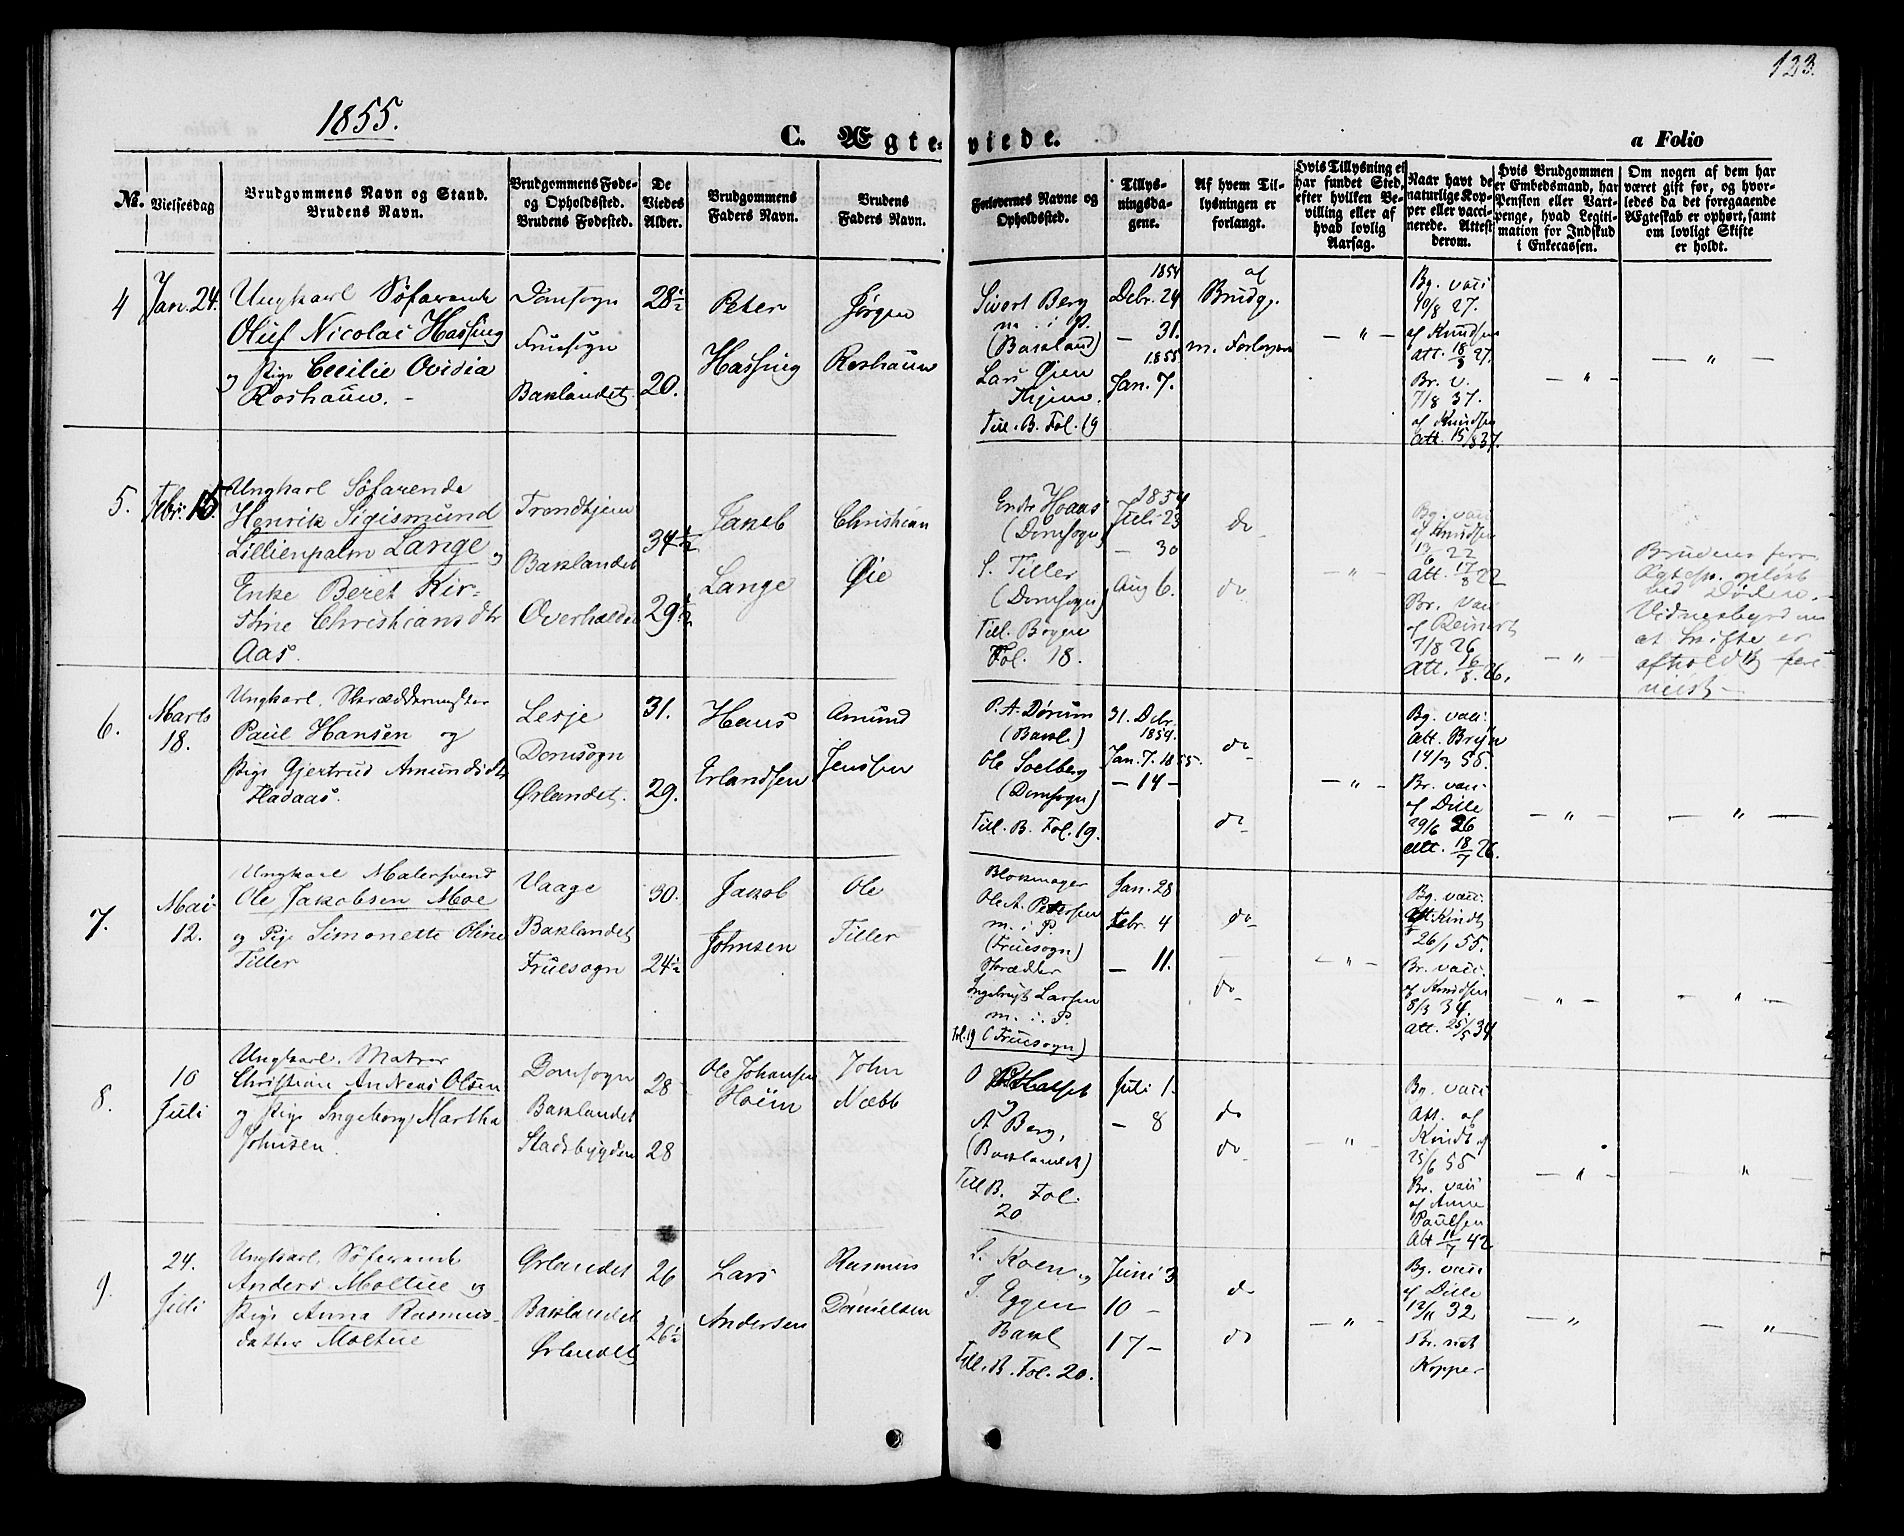 123.
1855.
C. Ægteviede.
a Folio
No.
Vielsesdag
Brudgommens Navn og Stand.
Brudens Navn.
Brudgommens Føde-
og Opholdssted.
Brudens Fødested.
De
Viedes
Alder.
Brudgommens
Faders Navn.
Brudens
Faders Navn.
Forlovernes Navne og
Opholdssted.
Tillys-
ningsda-
gene.
Af hvem Til-
lysningen er
forlangt.
Hvis Tillysning ei
har fundet Sted,
efter hvilken Be-
villing eller af
hvad lovlig
Aarsag.
Naar havt de
naturlige Kop-
per eller vacci-
nerede. Attest
derom.
Hvis Brudgommen
er Embedsmand, har
Pension eller Vart-
penge, hvad Legiti-
mation for Indskud
i Enkecassen.
Om nogen af dem har
været gift før, og hvor-
ledes da det foregaaende
Ægteskab er ophørt, samt
om lovligt Skifte
er holdt.
4
Jan. 24.
Ungkarl Söfarende
Oluf Nicolai Hassing
og Pige Cecilie Ovidia
Roshauw. -
Domsogn
Fruesogn
Baklandet
28½
20.
Peter
Hassing
Jørgen
Roshauw
Sivert Berg
m. i P.
(Bakland)
Lars Øien
Till. B. Fol. 19
1854
Debr. 24
— 31.
1855
Jan. 7.
af
Brudg.
m. Forloven
— " —
Bg. vacc
10/8 27.
af Knudsen
Att. 18/8 27.
Br. v.
7/8 37.
af Knudsen
Att. 15/8 37.
— " —
— " —
5.
Febr. 15
Ungkarl Söfarende
Henrik Sigismund
Lillienpalm Lange og
Enke Beret Kir-
stine Christiansdtr
Aas.
Trondhjem
Baklandet
Overhalden
34½
29½
Jakob
Lange
Christian
Øie
Endr Haas
(Domsogn)
S. Tiller
(Domsogn)
Till. Bogen
Fol. 18.
1854
Juli 23
— 30
Aug 6.
do
do
— " —
Bg. vacc
af Knudsen
13/6 22
Att. 17/8 22
Br. vacc
af Reinert
7/8 26
Att. 16/8 26.
— " —
Brudens forr.
Ægtesk. opløst
ved Døden. -
Vidnesbyrd om
at Skifte er
afholdt fore
viist -
6.
Marts
18.
Ungkarl. Skræddermester
Paul Hansen og
Pige Gjertrud Amundsdtr
Fladaas.
Lesje
Domsogn
Ørlandet.
31.
29.
Hans
Erlandsen
Amund
Jenssen
P. A. Dörum
(Bakl.)
Ole Solberg
(Domsogn)
Till. B. Fol. 19.
31. Debr.
1854.
Jan. 7. 1855.
— 14 —
do
do
— " —
Bg. vacc.
Att. Bryn
14/3 55.
Br. vacc
af Dille
29/6 26
Att. 18/7 26.
— " —
— " —
7.
Mai
12.
Ungkarl Malersvend
Ole Jakobsen Moe
og Pige Simonette Oline
Tiller
Vaage
Baklandet
Fruesogn
30.
24½
Jakob
Johnsen
Ole
Tiller
Blokmager
Ole A. Petersen
m. i P.
(Fruesogn)
Skrædder
Ingebrigt Larsen
m. i. P.
Fol. 19 (Fruesogn)
Jan. 28
Febr. 4
— 11.
do
do
— " —
Bg. vacc.
Att. Kindt
26/1 55.
Br. vacc.
af Knudsen
8/3 34.
Att. 25/5 34
— " —
— " —
8.
10
Juli
Ungkarl. Matros
Christian Andreas Olsen
og Pige Ingeborg Martha
Johnsen.
Domsogn
Baklandet
Stadsbygden
28
28
Ole Johansen
Hoem
John
Næbb
A Berg,
(Baklandet)
Till B. Fol.
20
Juli 1.
— 8
do
do
— " —
Bg. vacc
Att. af
Kindt af
25/6 55
Br. vacc
af Anne
Paulsen
Att 11/7 42
— " —
"
9.
24.
Juli
Ungkarl. Söfarende
Anders Moltue og
Pige Anna Rasmus-
datter Moltue
Ørlandet
Baklandet
Ørlandet
26
26½
Lars
Andersen
Rasmus
Danielsen
L. Koen og
J. Eggen
Bakl
Till. B. Fol. 20.
Juni 3
10 —
17 —
do
do
— " —
Bg. vacc
af Dille
12/11 32
Br. nat
Kopper
— " —
— " —